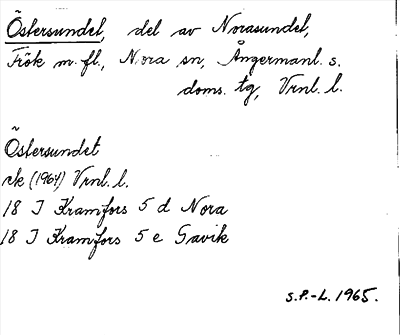 Östersundet, del av Norasundet,
Frök m. fl., Nora sn, Ångermanl. s.
doms. tg, Vrnl. l.
Östersundet
ek (1964) Vrnl. l.
18 I Kramfors 5 d Nora
18 I Kramfors 5 e Gavik
S.P.-L. 1965.